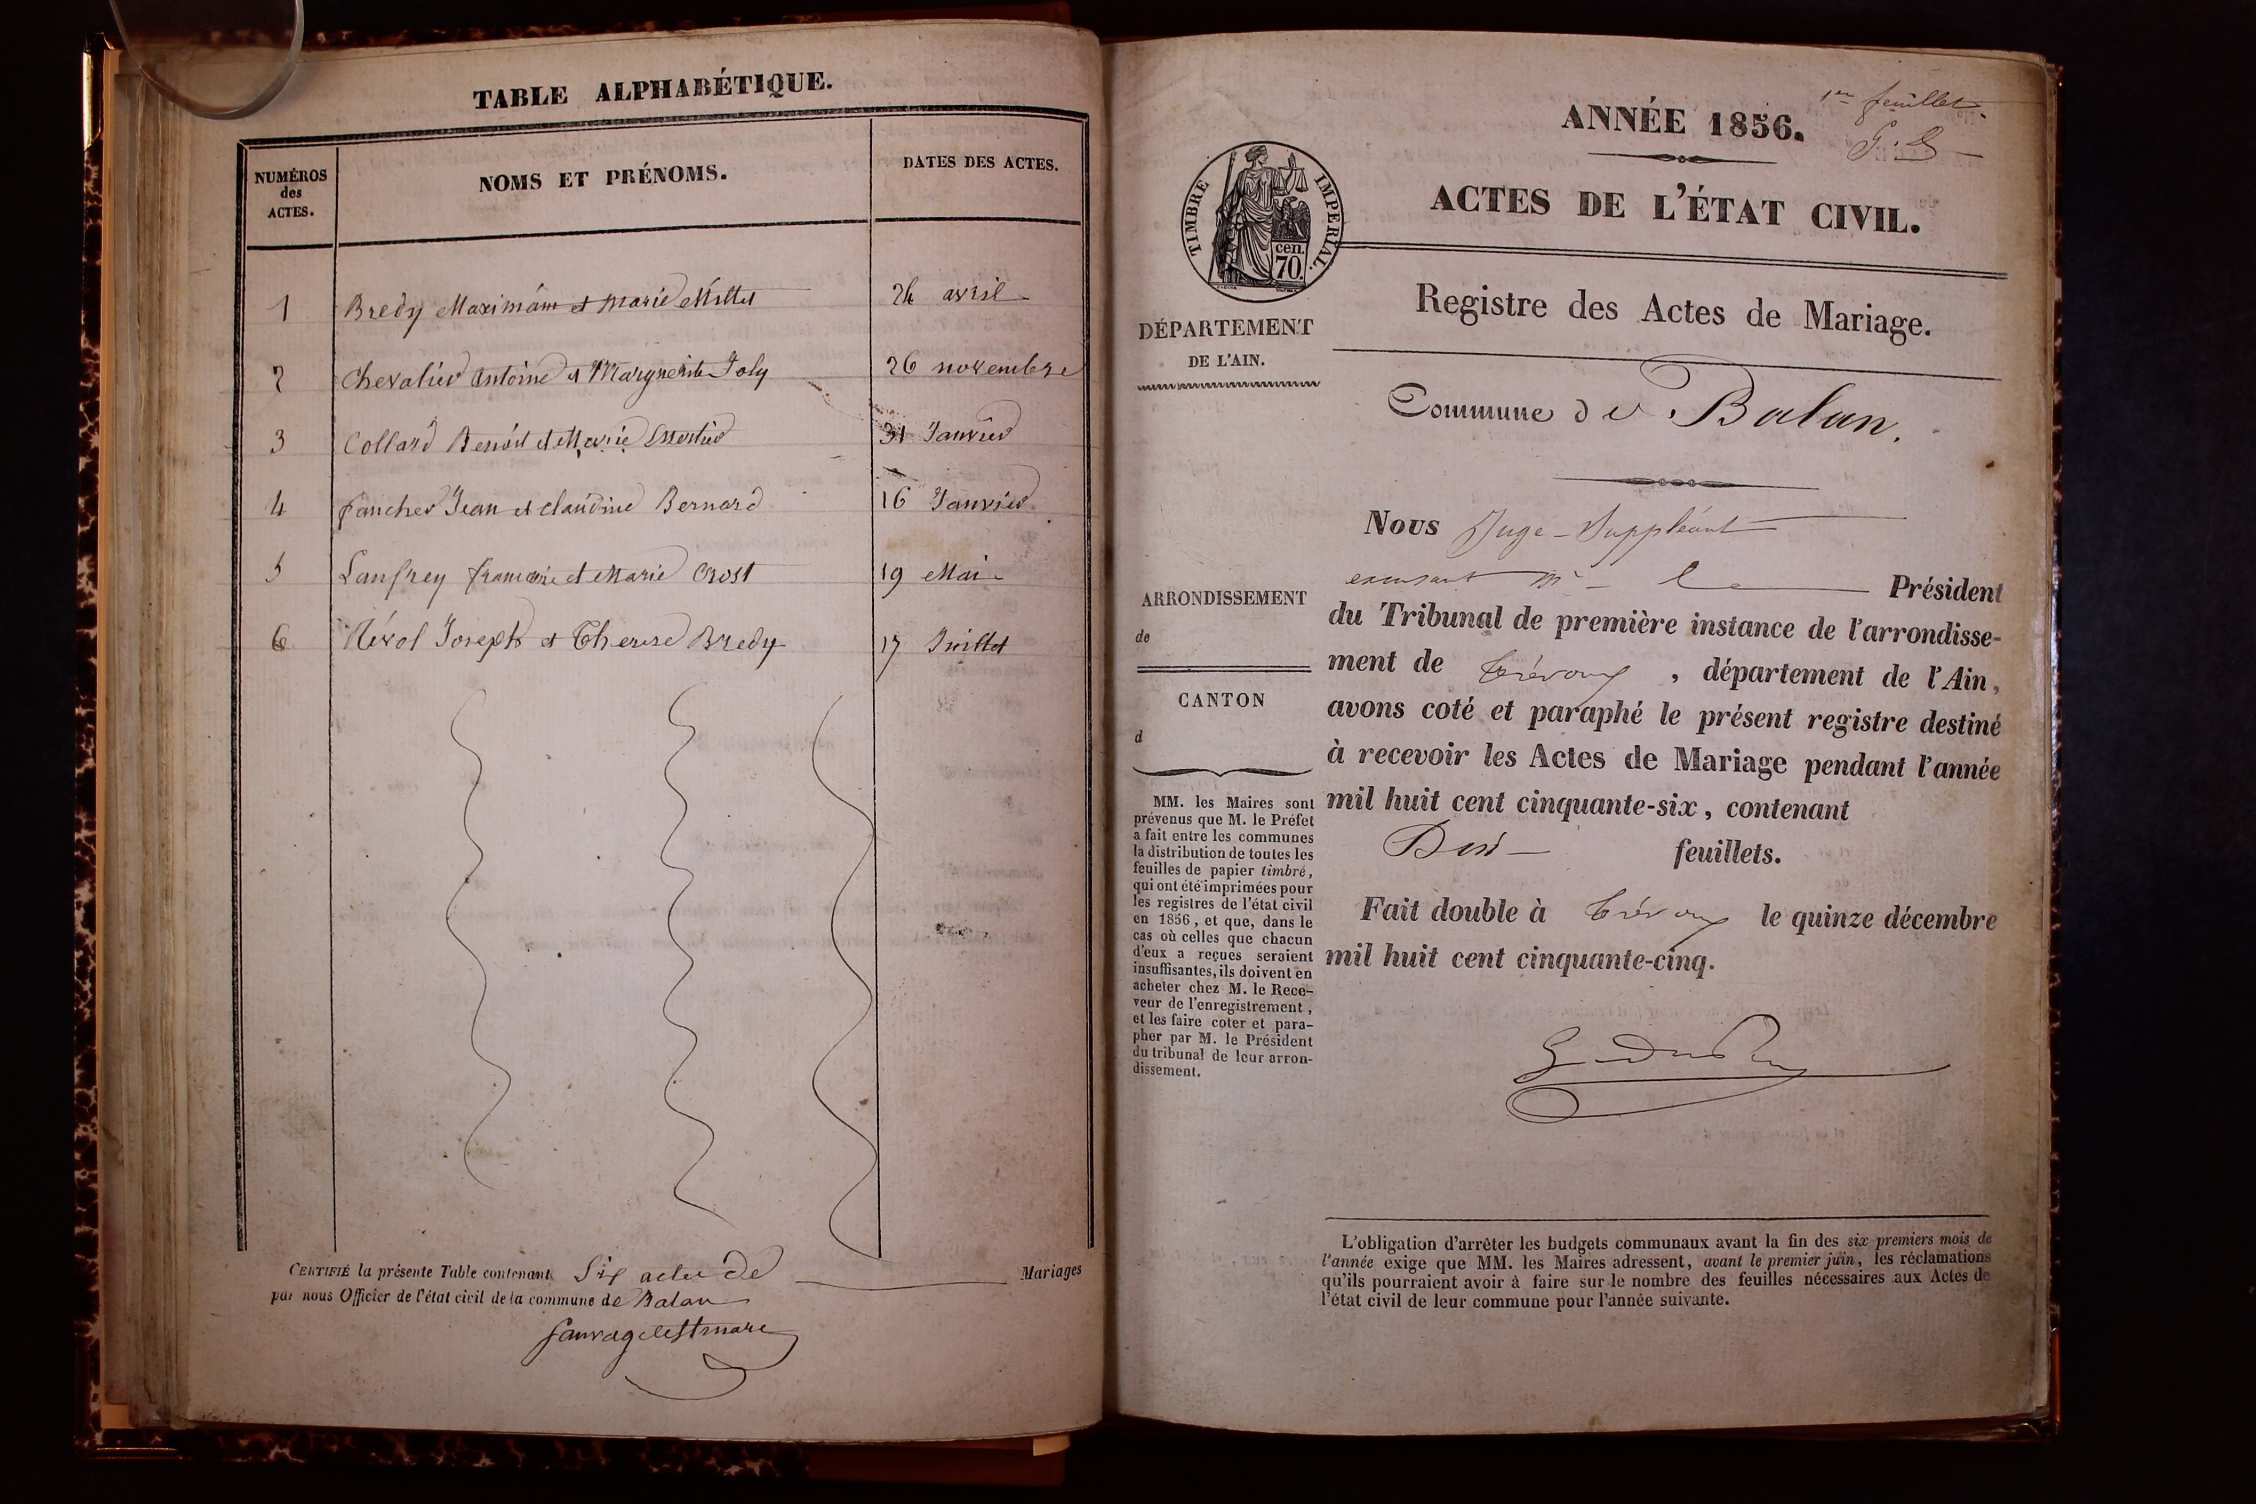 TABLE ALPHABÉTIQUE.
NUMÉROS
des
ACTES.
NOMS ET PRÉNOMS.
DATES DES ACTES.
1 Bredy Maximin et Marie Millet 24 avril
2 Chevalier Antoine et Marguerite Joly 26 novembre
3 Collard Benoit et Marie 31 Janvier
4 Fancher Jean et Claudine Bernard 16 Janvier
5 Lanfrey et Marie Crost 19 Mai
6 Névol Joseph et Therese Bredy 17 Juillet
CERTIFIÉ la présente Table contenant Six actes de Mariages
par nous Officier de l'état civil de la commune de Balan
1er feuillet.
ANNÉE 1856.
ACTES DE L'ÉTAT CIVIL.
TIMBRE IMPERIAL.
cen.
70.
DÉPARTEMENT
DE L'AIN.
Registre des Actes de Mariage.
Commune de Balan.
Nous Juge-Suppléant
excusant Mr le Président
ARRONDISSEMENT
de
CANTON
d
du Tribunal de première instance de l'arrondisse-
ment de Trévoux, département de l'Ain,
avons coté et paraphé le présent registre destiné
à recevoir les Actes de Mariage pendant l'année
mil huit cent cinquante-six, contenant
feuillets.
Fait double à Trévoux le quinze décembre
mil huit cent cinquante-cinq.
MM. les Maires sont
prévenus que M. le Préfet
a fait entre les communes
la distribution de toutes les
feuilles de papier timbré,
qui ont été imprimées pour
les registres de l'état civil
en 1856, et que, dans le
cas où celles que chacun
d'eux a reçues seraient
insuffisantes, ils doivent en
acheter chez M. le Rece-
veur de l'enregistrement,
et les faire coter et para-
pher par M. le Président
du tribunal de leur arron-
dissement.
L'obligation d'arrêter les budgets communaux avant la fin des six premiers mois de
l'année exige que MM. les Maires adressent, avant le premier juin, les réclamations
qu'ils pourraient avoir à faire sur le nombre des feuilles nécessaires aux Actes de
l'état civil de leur commune pour l'année suivante.